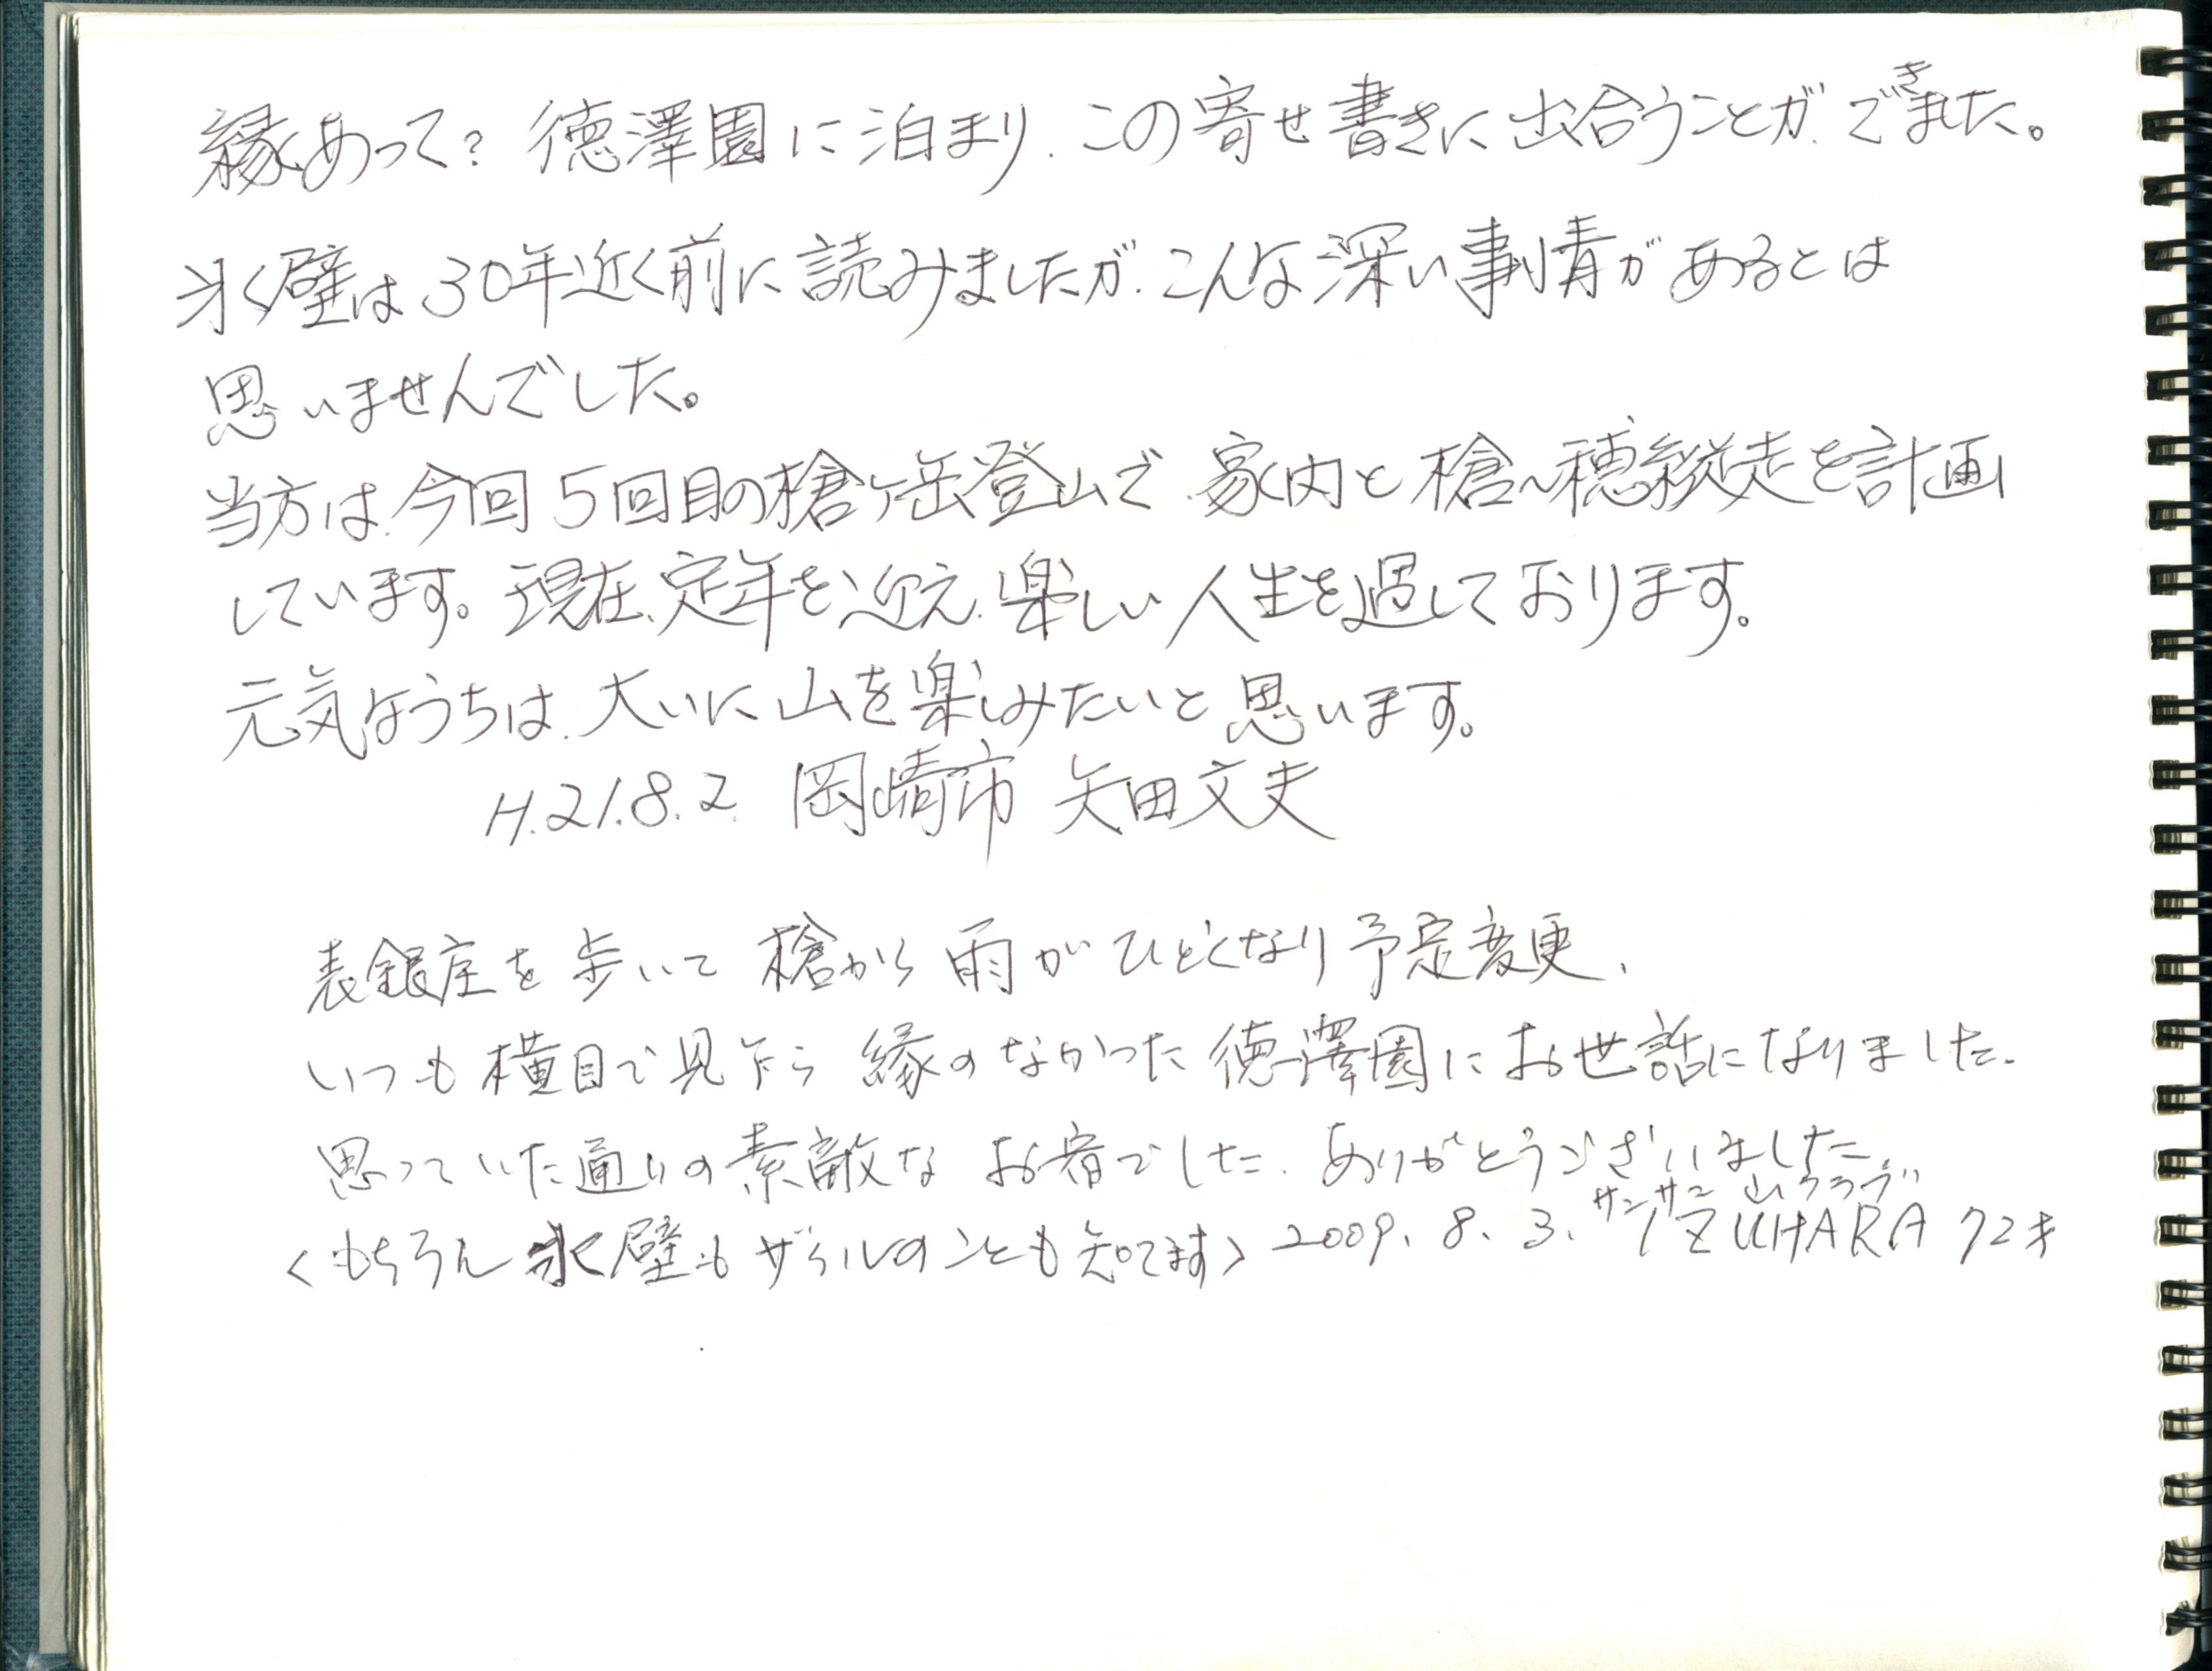 縁あって？徳澤園に泊まり、この寄せ書きに出合うことが、できました。
氷壁は30年近く前に読みましたが、こんな深い事情があるとは
思いませんでした。
当方は、今回5回目の槍ヶ岳登山で、家内と槍〜穂縦走を計画
しています。現在、定年を迎え、楽しい人生を過しております。
元気なうちは、大いに山を楽しみたいと思います。
H.21.8.2. 岡崎市 矢田文夫
表銀座を歩いて槍から雨がひどくなり予定変更、
いつも横目で見乍ら縁のなかった徳澤園にお世話になりました。
思っていた通りの素敵なお宿でした。ありがとうございました
サンサン山クラブ
<もちろん氷壁もザイルのことも知ってます> 2009. 8. 3. IZUHARA 72才